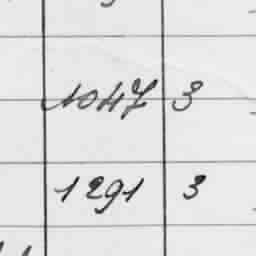 1047 3
1291 3